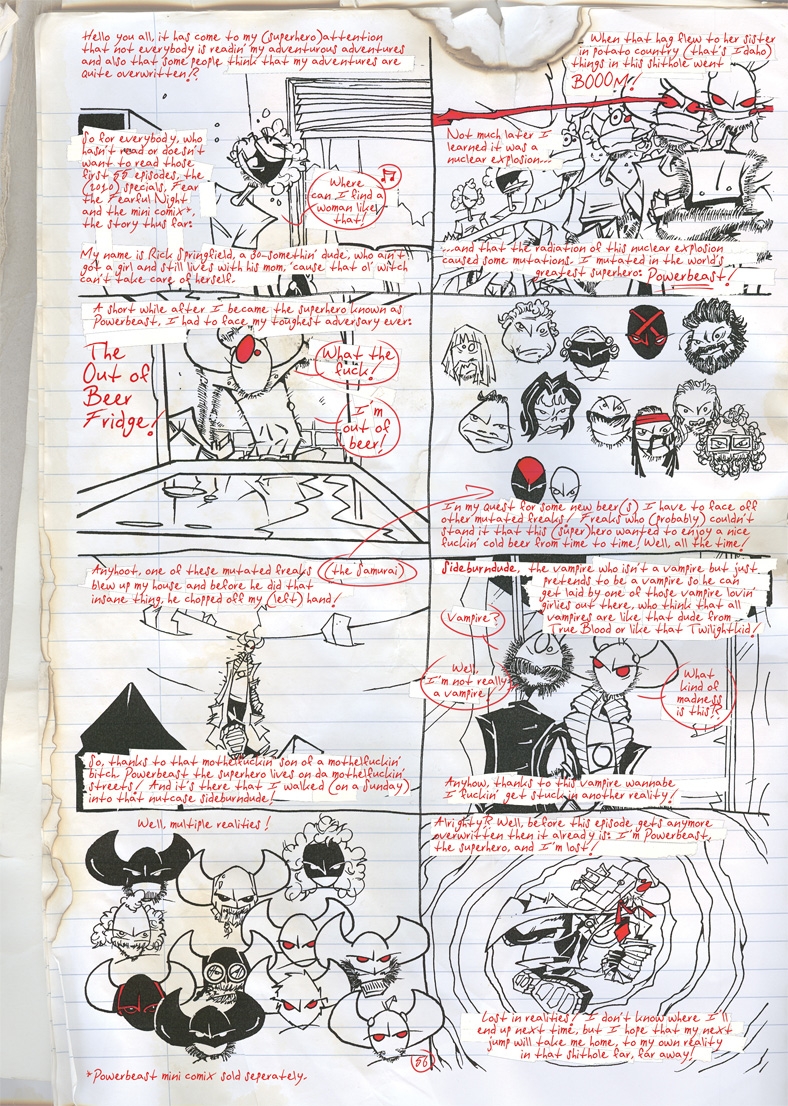 Hello you all, it has come to my (superhero)attention
that not everybody is readin' my adventurous adventures
and also that some people think that my adventures are
quite overwritten!?
So for everybody, who
hasn't read or doesn't
want to read those
first 55 episodes, the
(2010) specials, Fear
the Fearful Night
and the mini comix*,
the story thus far:
Where
can I find a
woman like
that!
My name is Rick Springfield, a 30-somethin' dude, who ain't
got a girl and still lives with his mom, 'cause that ol' witch
can't take care of herself.
When that hag flew to her sister
in potato country (that's Idaho)
things in this shithole went
BOOOM!
Not much later I
learned it was a
nuclear explosion...
...and that the radiation of this nuclear explosion
caused some mutations. I mutated in the world's
greatest superhero: Powerbeast!
A short while after I became the superhero known as
Powerbeast, I had to face my toughest adversary ever:
The
Out of
Beer
Fridge!
What the
fuck!
I'm
out of
beer!
In my quest for some new beer(s) I have to face off
other mutated freaks! Freaks who (probably) couldn't
stand it that this (super)hero wanted to enjoy a nice
fuckin' cold beer from time to time! Well, all the time!
Anyhoot, one of these mutated freaks (the Samurai)
blew up my house and before he did that
insane thing, he chopped off my (left) hand!
So, thanks to that motherfuckin' son of a motherfuckin'
bitch Powerbeast the superhero lives on da motherfuckin'
streets! And it's there that I walked (on a Sunday)
into that nutcase sideburndude!
Sideburndude, the vampire who isn't a vampire but just
pretends to be a vampire so he can
get laid by one of those vampire lovin'
girlies out there, who think that all
vampires are like that dude from
True Blood or like that Twilightkid!
Vampire?
Well,
I'm not really
a vampire!
What
kind of
madness
is this!?
Anyhow, thanks to this vampire wannabe
I fuckin' get stuck in another reality!
Well, multiple realities!
Alrighty? Well, before this episode gets anymore
overwritten then it already is: I'm Powerbeast,
the superhero, and I'm lost!
Lost in realities! I don't know where I'll
end up next time, but I hope that my next
jump will take me home, to my own reality
in that shithole far, far away!
56
*Powerbeast mini comix sold seperately.